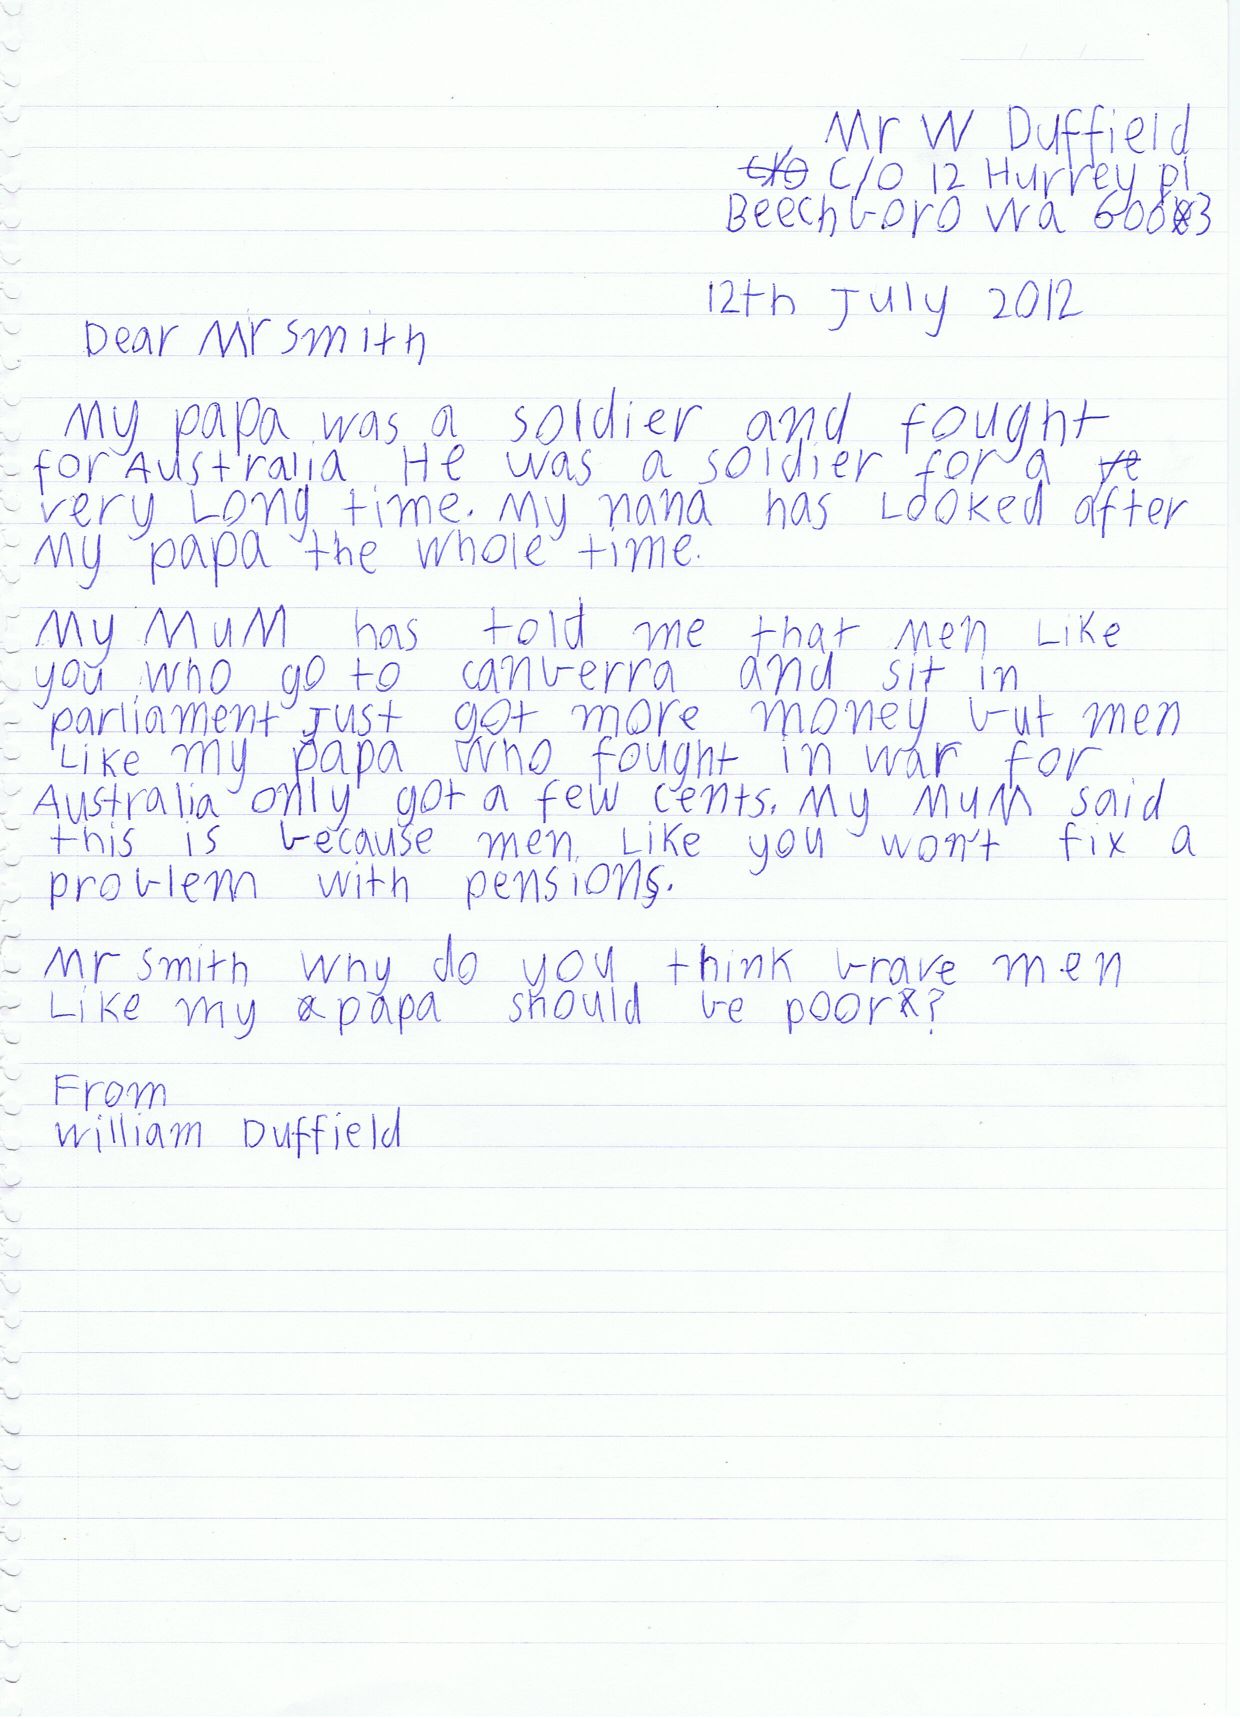 Mr W Duffield
C/O 12 Hurrey pl
Beechboro Wa 6063
12th July 2012
Dear Mr smith
My papa was a soldier and fought
for Australia. He was a soldier for a
very Long time. My nana has Looked after
My papa the whole time.
My MuM has told me that men Like
you who go to canberra and sit in
parliament just got more money but men
Like my papa who fought in war for
Australia only got a few cents. My MuM said
this is because men Like you won't fix a
problem with pensions.
Mr smith why do you think brave men
Like my papa should be poor?
From
William Duffield